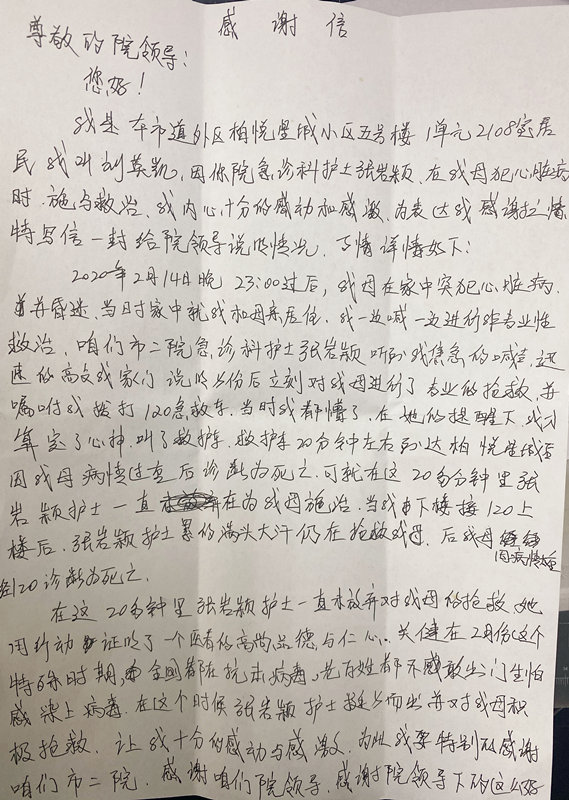 感谢信
尊敬的院领导:
您好!
我是本市道外区柏悦星城小区五号楼1单元2108室居
民我叫刘英凯,因你院急诊科护士张岩颖、在我母犯心脏病
时、施与救治、我内心十分的感动和感激、为表达我感谢之情
特写信一封给院领导说明情况、事情详情如下:
2020年2月14日晚23:00过后,我母在家中突犯心脏病、
并昏迷、当时家中就我和母亲居住、我一边喊一边进行非专业性
救治、咱们市二院急诊科护士张岩颖听到我焦急的喊声、迅
速的高文我家门说明身份后立刻对我母进行了专业的抢救、并
嘱咐我拨打120急救车、当时我都懵了、在她的提醒下、我才
算定了心神、叫了救护车、救护车20分钟左右到达柏悦星城后
因我母病情过重后诊断为死亡、可就在这20多分钟里张
岩颖护士一直在为我母施治、当我由下楼接120上
楼后、张岩颖护士累的满头大汗仍在抢救我母、后我母因病情过重
经120诊断为死亡、
在这20分钟里张岩颖护士一直未放弃对我母的抢救、她
用行动证明了一个医者的高尚品德与仁心、关健在2月份这个
特殊时期、全国都在抗击病毒、老百姓都不敢出门生怕
感染上病毒、在这个时候张岩颖护士挺身而出并对我母积
极抢救、让我十分的感动与感激、为此我要特别的感谢
咱们市二院、感谢咱们院领导、感谢院领导下的这么好